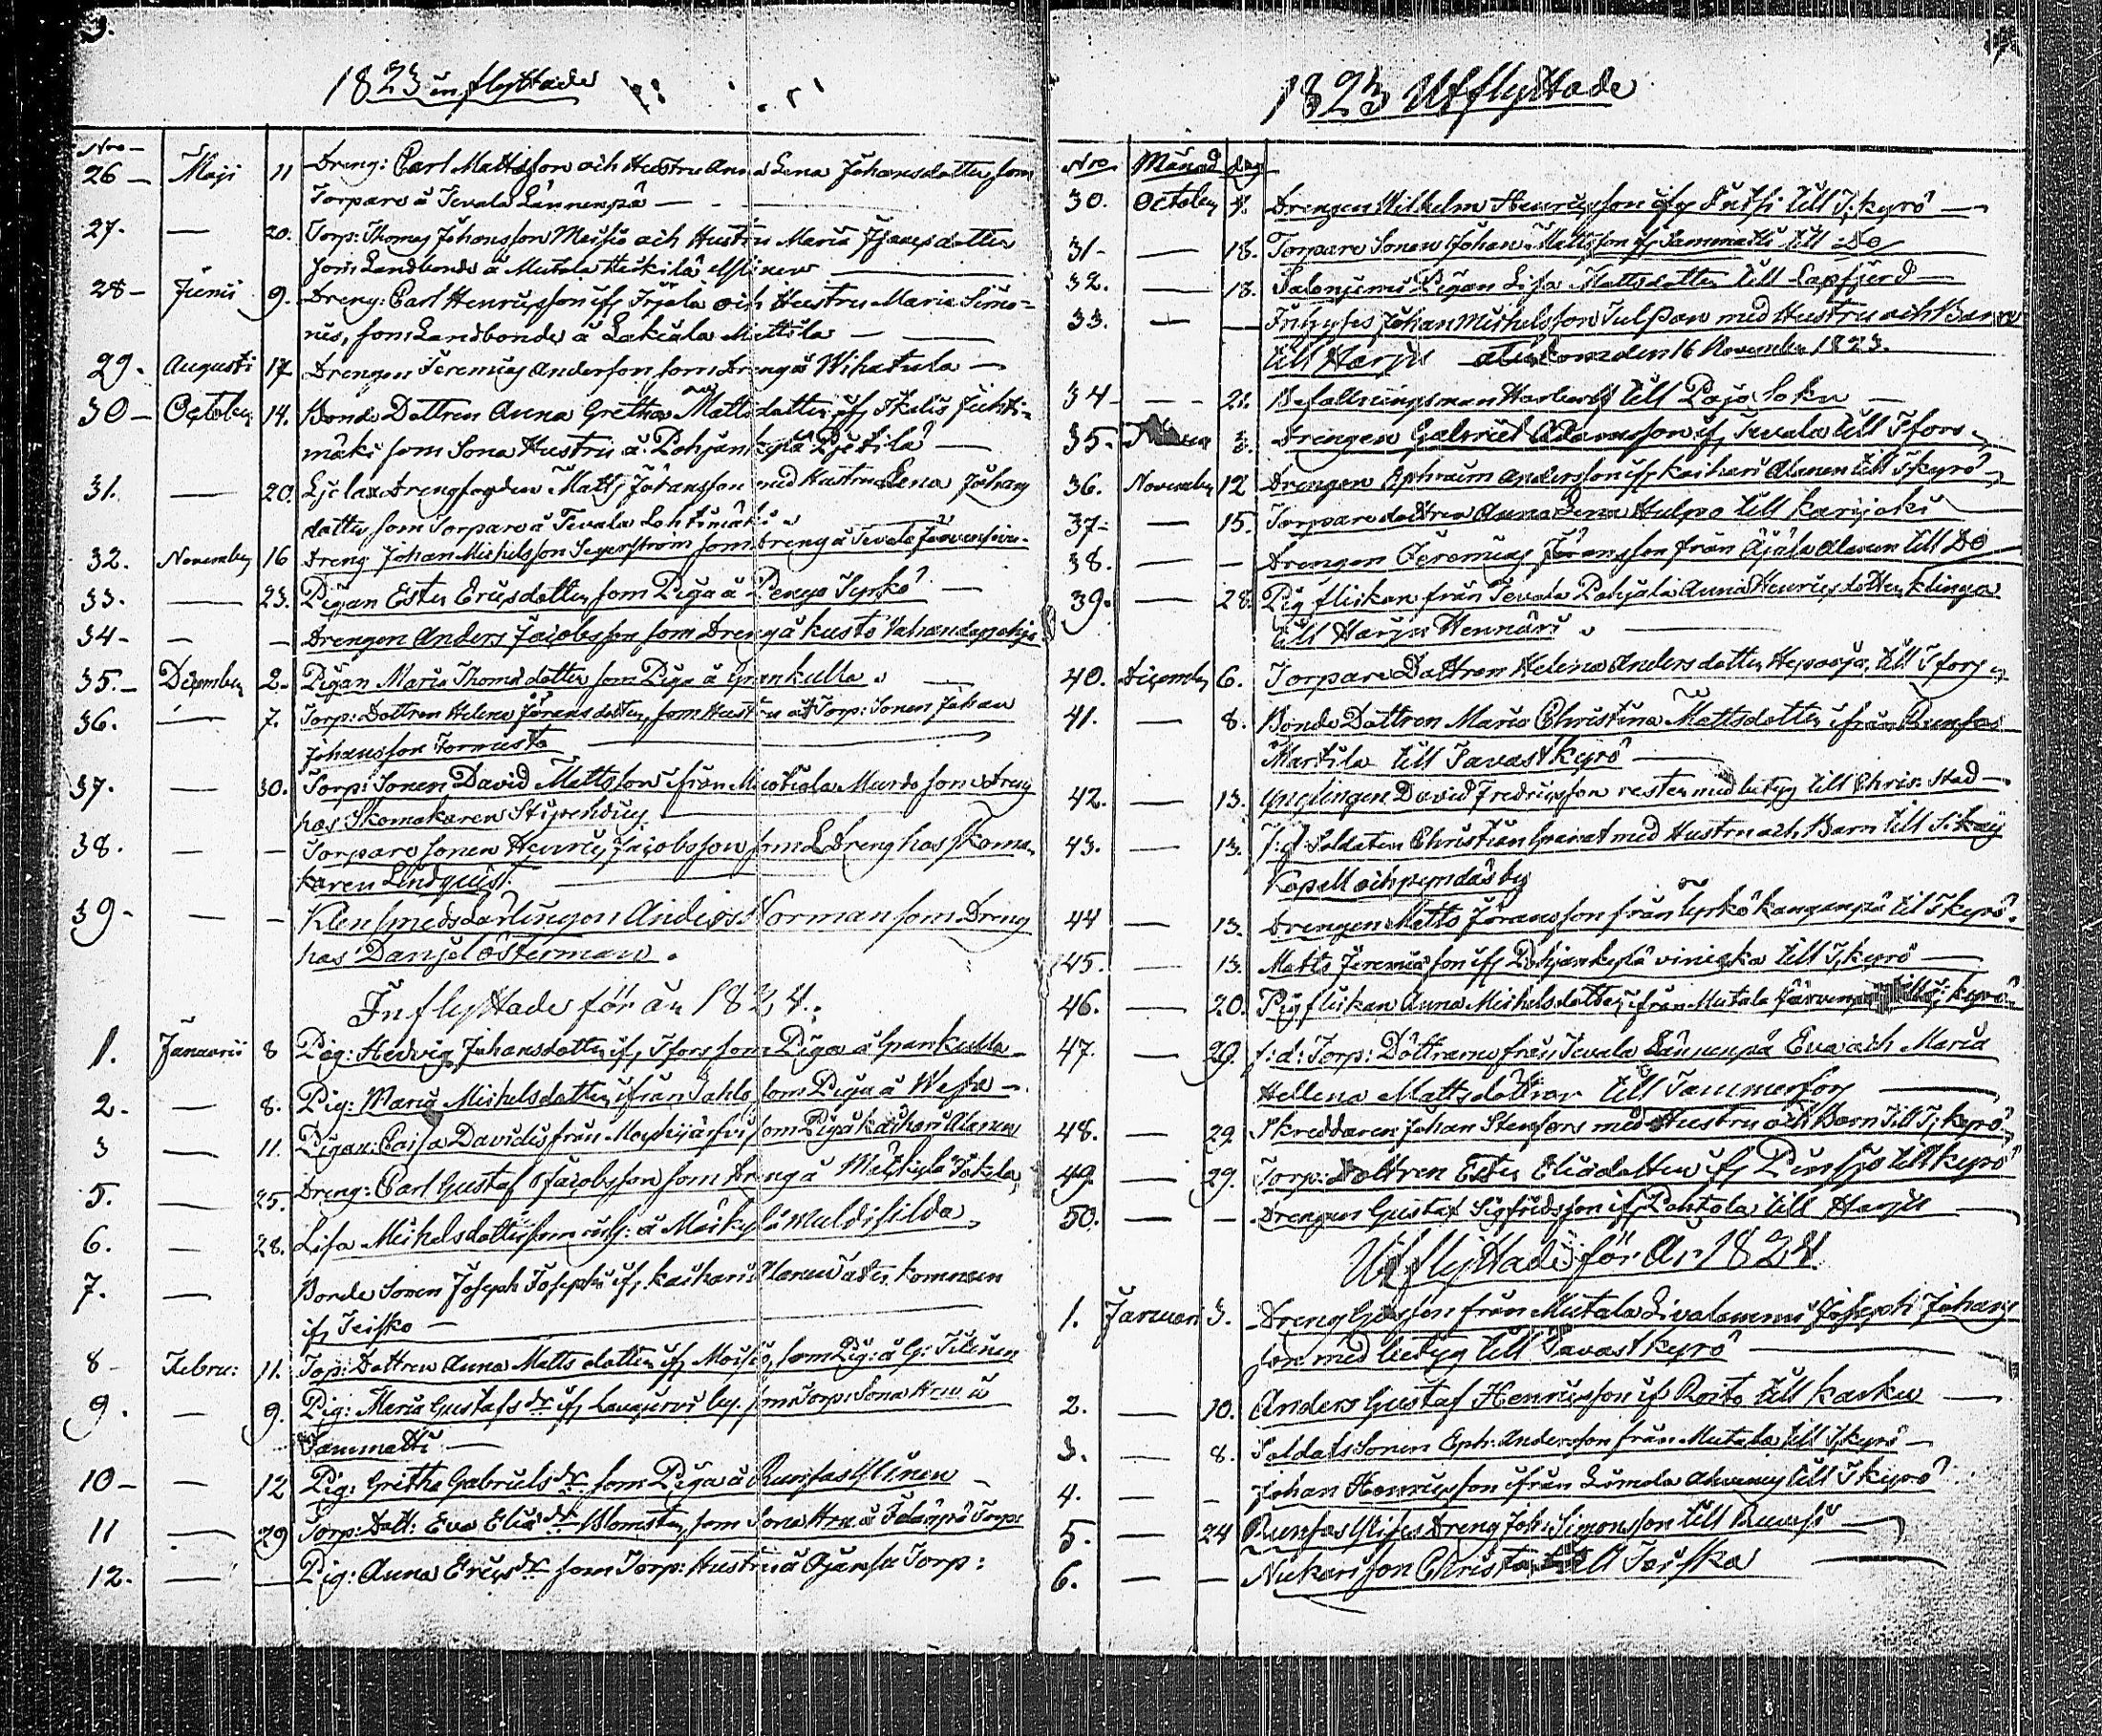 3.
1823 inflyttade
Nro
26 — Maji 11 Dreng: Carl Mattsson och Hustru Anna Lena Johansdotter som
Torpare å Tevala Lännenpä —
27. — 20. Torp: Thomas Johansson och Hustru Maria dotter
som Landbonde å Mutala Heikilä
28 — Junii 9. Dreng: Carl Henricsson if Irjala och Hustru Maria Simo=
nis, som Landbonde å Lakiala Mattila —
29. Augusti 17 Drengen Jeremias Anderson som Dreng å Wihatula —
30 — October 14. Bonde Dottren Anna Gretha Mattsdotter if Ikalis Juhti=
mäki som Sona Hustru å Pohjankylä Pjetilä —
31. — 20. Drengfogden Matts Johansson med Hustru Lena Johans
dotter som Torpare å Tevala Lehtimäki
32. November 16 Dreng Johan Michelsson Segerström som Dreng å Tevala
33. — 23. Pigan Ester Ericsdotter som Piga å Penejo Syrkö —
34 — — — Drengen Anders Jacobsson som Dreng å Kusto
35. — December 2. Pigan Maria Thomådotter som Piga å Grankulla
36. — 7. Torp: Dottren Helena Jöransdotter som Hustru åt Torp: Sonen Johan
Johansson Tormusto
37. — 30. Torp: Sonen David Mattsson ifrån Murto som Dreng
hos Skomakaren Stipendius
38. — — Torpare sonen Henric Jacobsson som L Dreng hos Skoma-
karen Lindquist.
39 — — — Klensmedslärlingen Anders Norman som Dreng
hos Danjel Österman.
Inflyttade för år 1824.
1. Januarii 8 Pig: Hedvig Johansdotter if Tfors som Piga å Grankulla —
2. — 8. Pig: Maria Michelsdotter ifrån Sahlo som Piga å —
3 — 11. Pigan: Caisa Davidis från som Piga Kaihari Alanen
5. — 25. Dreng: Carl Gustaf Jacobsson som Dreng å Mäskylä Tokela
6. — 28. Lisa Michelsdotter som å Mäskylä
7. — Bonde Sonen Joseph Josephi if Kaihari Alanen åter kommen
if Teisko —
8 — Febru: 11. Torp: Dottren Anna Mattsdotter if som Pig: å G:
9. — 9. Pig: Maria Gustafs dr if by. som Torp: Sona Hru å
Sammatti —
10 — — 12 Pig: Gretha Gabriels dr som Piga å Runsas Ylinen —
11 — 29 Torp: Dott: Eva Eliæ dr Blomster som Sona Hru å Torp
12. — — Pig: Anna Erics dr som Torp: Hustru å Torp:
1823 Utflyttade
Nro Månad dag
30. October 9. Drengen Wilhelm Henricsson if till T. kyrö —
31 — — 18. Torpare Sonen Johan Mattsson if Sammatti till Do
32. — 18. Pigan Lisa Mattsdotter till Lapfjerd —
33. — — Inhyses Johan Michelsson Tulpan med Hustru och Barn
till Harju återkom den 16 November 1823.
34 — — 21. Befallningsman till —
35. 3. Drengen Gabriel Adamsson if Tevala till Tfors
36. November 12 Drengen Ephraim Andersson if Kaihari Alanen till T kyrö
37 — — 15. Torpare dottren Anna Lena Hulpo till Karijoki
38. — — Drengen Jeremias Jöransson från Alanen till Do
39. — 28. Pig flickan från Tevala Pohjala Anna Henricsdotter Klinga
till Harju Hennäri
40. December 6. Torpare Dottren Helena Andersdotter till Tfors
41. — 8. Bonde Dottren Maria Christina Mattsdotter ifrån Runsas
Martila till Tavastkyrö
42. — 13. Ynglingen David Fredricsson restes med betyg till Chris. Stad —
43. — 13. f: d: Soldaten Christian Granat med Hustru och Barn till
Kapell och by
44 — 13. Drengen Matts Jöransson från Syrkö Kangenpä til T kyrö.
45. — 13. Matts Jeremiasson if Pohjankylä till T. kyrö —
46. — 20. Pig flickan Anna Michelsdotter ifrån Mutala till T. kyrö
47. — 29. f: d: Torp: Döttrarne från Tevala Lännenpä Eva och Maria
Hellena Mattsdöttrar till Tammerfors
48. — 29 Skreddaren Johan Stenfors med Hustru och Barn till T. kyrö
49. — 29. Torp: Dottren Ester Eliædotter if Pinsjo till kyrö
50. — — Drengen Gustaf Sigfridsson if Pohtola till Harju
Utflyttade för År 1824
1. Januari 3. Dreng från Mutala Josephi Johans
son med betyg till Tavastkyrö
2. — 10. Anders Gustaf Henricsson if Rosto till Karku —
3. — 8. Soldats Sonen Eph: Andersson från Mutala till T. kyrö —
4. — — Johan Henricsson ifrån till T kyrö
5. — 24 Runsas Dreng Joh: Simonsson till
6. — — Christa till Teisko